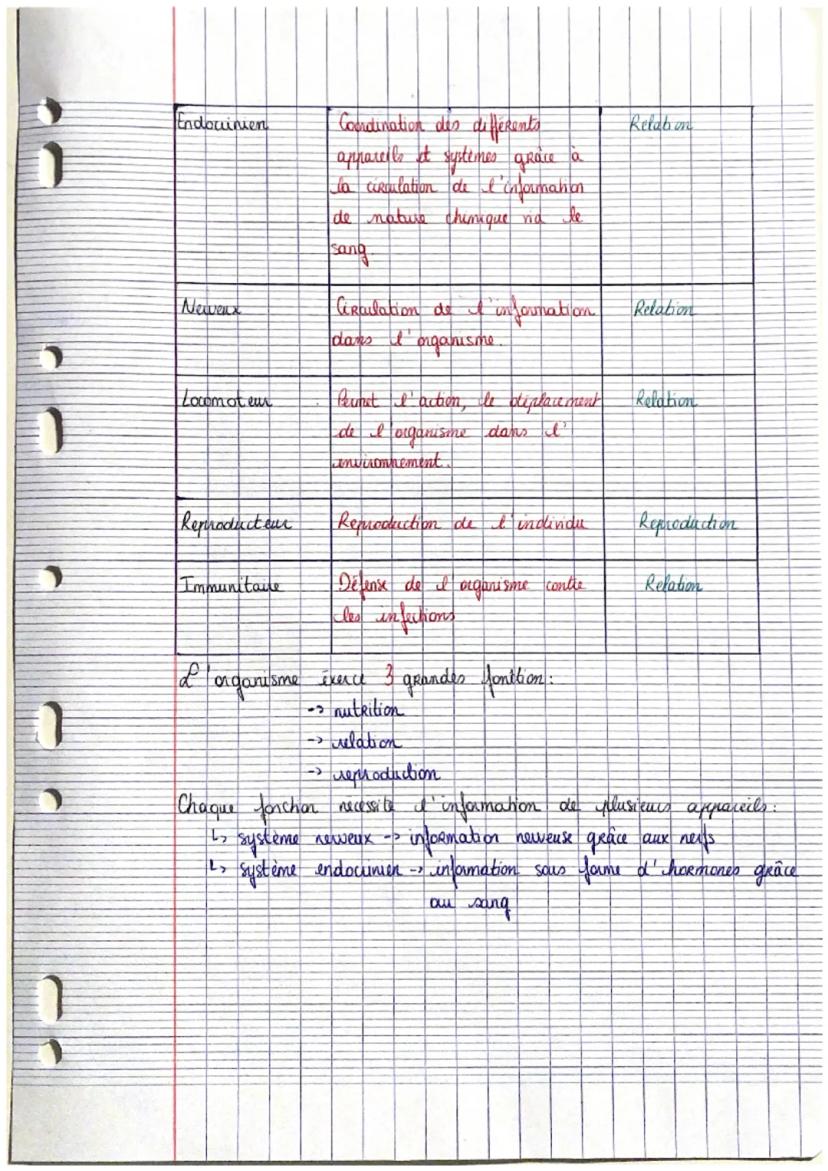 Endocrinien
Coordination des différents
appareils et systèmes grâce à
la circulation de l'information
de nature chimique via le
sang
Relation
Nerveux
Circulation de l'information
dans l'organisme.
Relation
Locomoteur
Permet l'action, le déplacement
de l'organisme dans l'
environnement.
Relation
Reproducteur
Reproduction de l'individu
Reproduction
Immunitaire
Défense de l'organisme contre
les infections
Relation
L'organisme exerce 3 grandes fonction :
-> nutrition
-> relation
-> reproduction
Chaque fonction nécessite l'information de plusieurs appareils :
↳ système nerveux -> information nerveuse grâce aux nerfs
↳ système endocrinien -> information sous forme d'hormones grâce
au sang